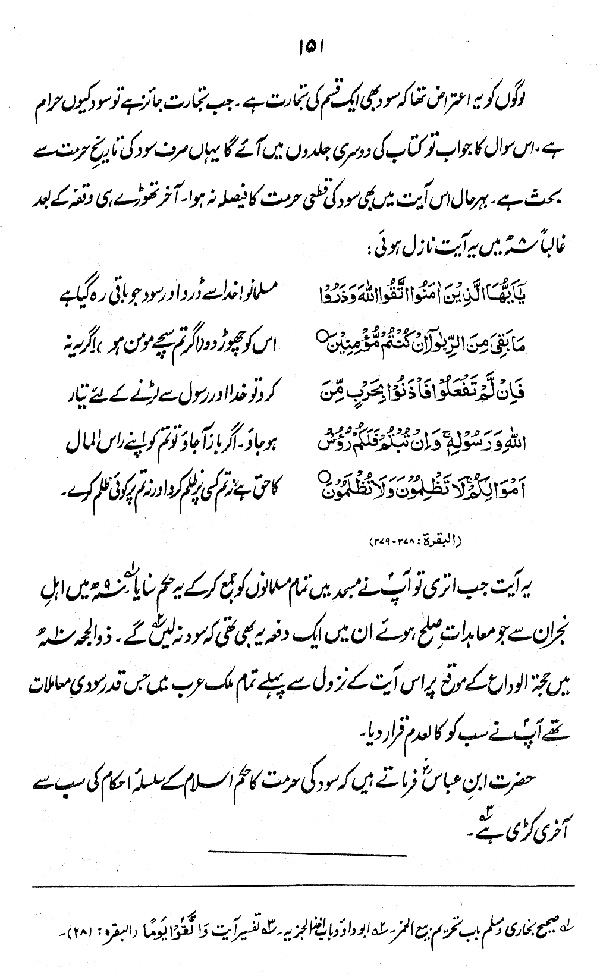 ۱۵۱
لوگوں کو یہ اعتراض تھا کہ سود بھی ایک قسم کی تجارت ہے۔ جب تجارت جائز ہے تو سود کیوں حرام
ہے۔ اس سوال کا جواب تو کتاب کی دوسری جلدوں میں آئے گا یہاں صرف سود کی تاریخِ حرمت سے
بحث ہے۔ بہرحال اس آیت میں بھی سود کی قطعی حرمت کا فیصلہ نہ ہوا۔ آخر تھوڑے ہی وقفہ کے بعد
غالباً ۸ھ میں یہ آیت نازل ہوئی:
يَا يُّهَا الَّذِيْنَ اٰمَنُوا اتَّقُوا اللهَ وَذَرُوْا
مَا بَقِيَ مِنَ الرِّبٰوا اِنْ كُنْتُمْ مُّؤْمِنِيْنَ ○
فَاِنْ لَّمْ تَفْعَلُوْا فَاْذَنُوْا بِحَرْبٍ مِّنَ
اللهِ وَرَسُوْلِهٖ ۚ وَاِنْ تُبْتُمْ فَلَكُمْ رُءُوْسُ
اَمْوَالِكُمْ ۚ لَا تَظْلِمُوْنَ وَلَا تُظْلَمُوْنَ ○
(البقرۃ: ۲۷۸-۲۷۹)
مسلمانو! خدا سے ڈرو اور سود جو باقی رہ گیا ہے
اس کو چھوڑ دو، اگر تم سچے مومن ہو، اگر یہ نہ
کرو تو خدا اور رسول سے لڑنے کے لئے تیار
ہو جاؤ۔ اگر باز آجاؤ تو تم کو اپنے راس المال
کا حق ہے نہ تم کسی پر ظلم کرو اور نہ تم پر کوئی ظلم کرے۔
یہ آیت جب اتری تو آپؐ نے مسجد میں تمام مسلمانوں کو جمع کرکے یہ حکم سنایا۱ ۹ھ میں اہلِ
نجران سے جو معاہداتِ صلح ہوئے ان میں ایک دفعہ یہ بھی تھی کہ سود نہ لیں۲ گے۔ ذوالحجہ ۱۰ھ
میں حجۃ الوداع کے موقع پر اس آیت کے نزول سے پہلے تمام ملک عرب میں جس قدر سودی معاملات
تھے آپؐ نے سب کو کالعدم قرار دیا۔
حضرت ابن عباسؓ فرماتے ہیں کہ سود کی حرمت کا حکم اسلام کے سلسلۂ احکام کی سب سے
آخری کڑی ہے۳۔
۱ صحیح بخاری و مسلم باب تحریم بیع الخمر۔ ۲ ابو داؤد باب اخذ الجزیہ۔ ۳ تفسیر آیت وَاتَّقُوْا يَوْمًا (البقرہ: ۲۸۱)۔